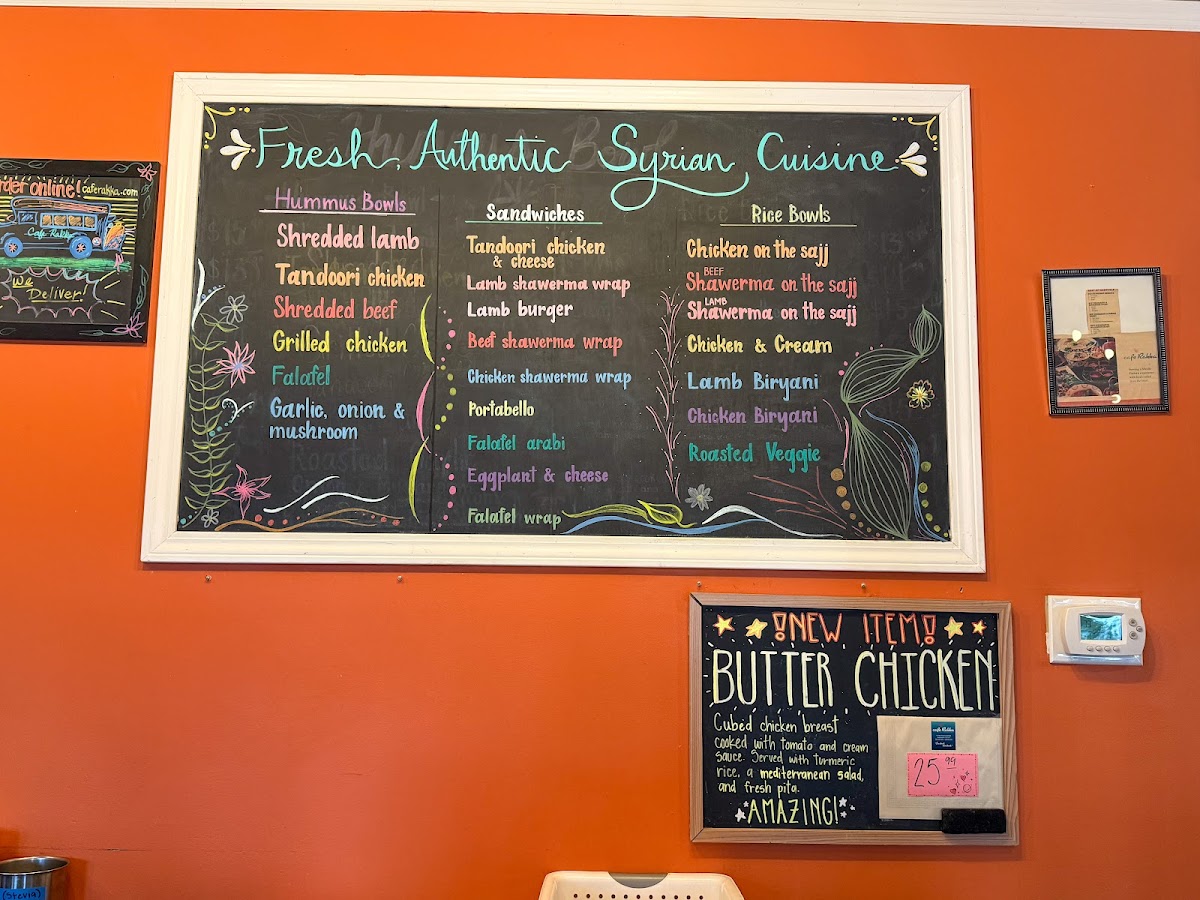 rder online! caferakka.com
Cafe Rakka
We
Deliver!
Fresh, Authentic Syrian Cuisine
Hummus Bowls
Shredded lamb
Tandoori chicken
Shredded beef
Grilled chicken
Falafel
Garlic, onion &
mushroom
Sandwiches
Tandoori chicken
& cheese
Lamb shawerma wrap
Lamb burger
Beef shawerma wrap
Chicken shawerma wrap
Portabello
Falafel arabi
Eggplant & cheese
Falafel wrap
Rice Bowls
Chicken on the sajj
BEEF
Shawerma on the sajj
LAMB
Shawerma on the sajj
Chicken & Cream
Lamb Biryani
Chicken Biryani
Roasted Veggie
!NEW ITEM!
BUTTER CHICKEN
Cubed chicken breast
cooked with tomato and cream
sauce. Served with turmeric
rice, a mediterranean salad,
and fresh pita.
AMAZING!
cafe Rakka
25 99
cafe Rakka
(Stevia)